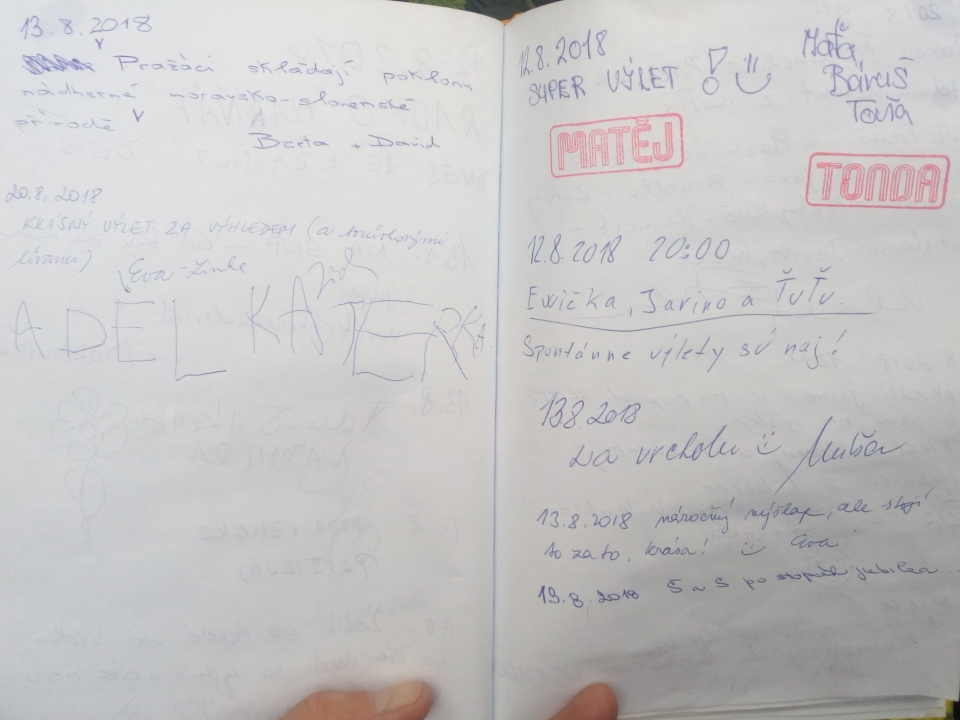 13.8.2018
Pražáci skládají poklonu
nádherné moravsko-slovenské
přírodě
Beata + David
20.8.2018
KRÁSNÝ VÝLET ZA VÝHLEDEM (a
Eva
ADELKA JERKA
12.8.2018
SUPER VÝLET!
Maťa
Báruš
Toňa
MATĚJ
TONDA
12.8.2018 20:00
Evička, Jarino a ŤuŤu.
Spontánne výlety sú naj!
13.8.2018
Na vrcholu
13.8.2018 náročný výšlap, ale stojí
to za to. krása! Eva
13.8.2018 S a S po stopách jubilea...